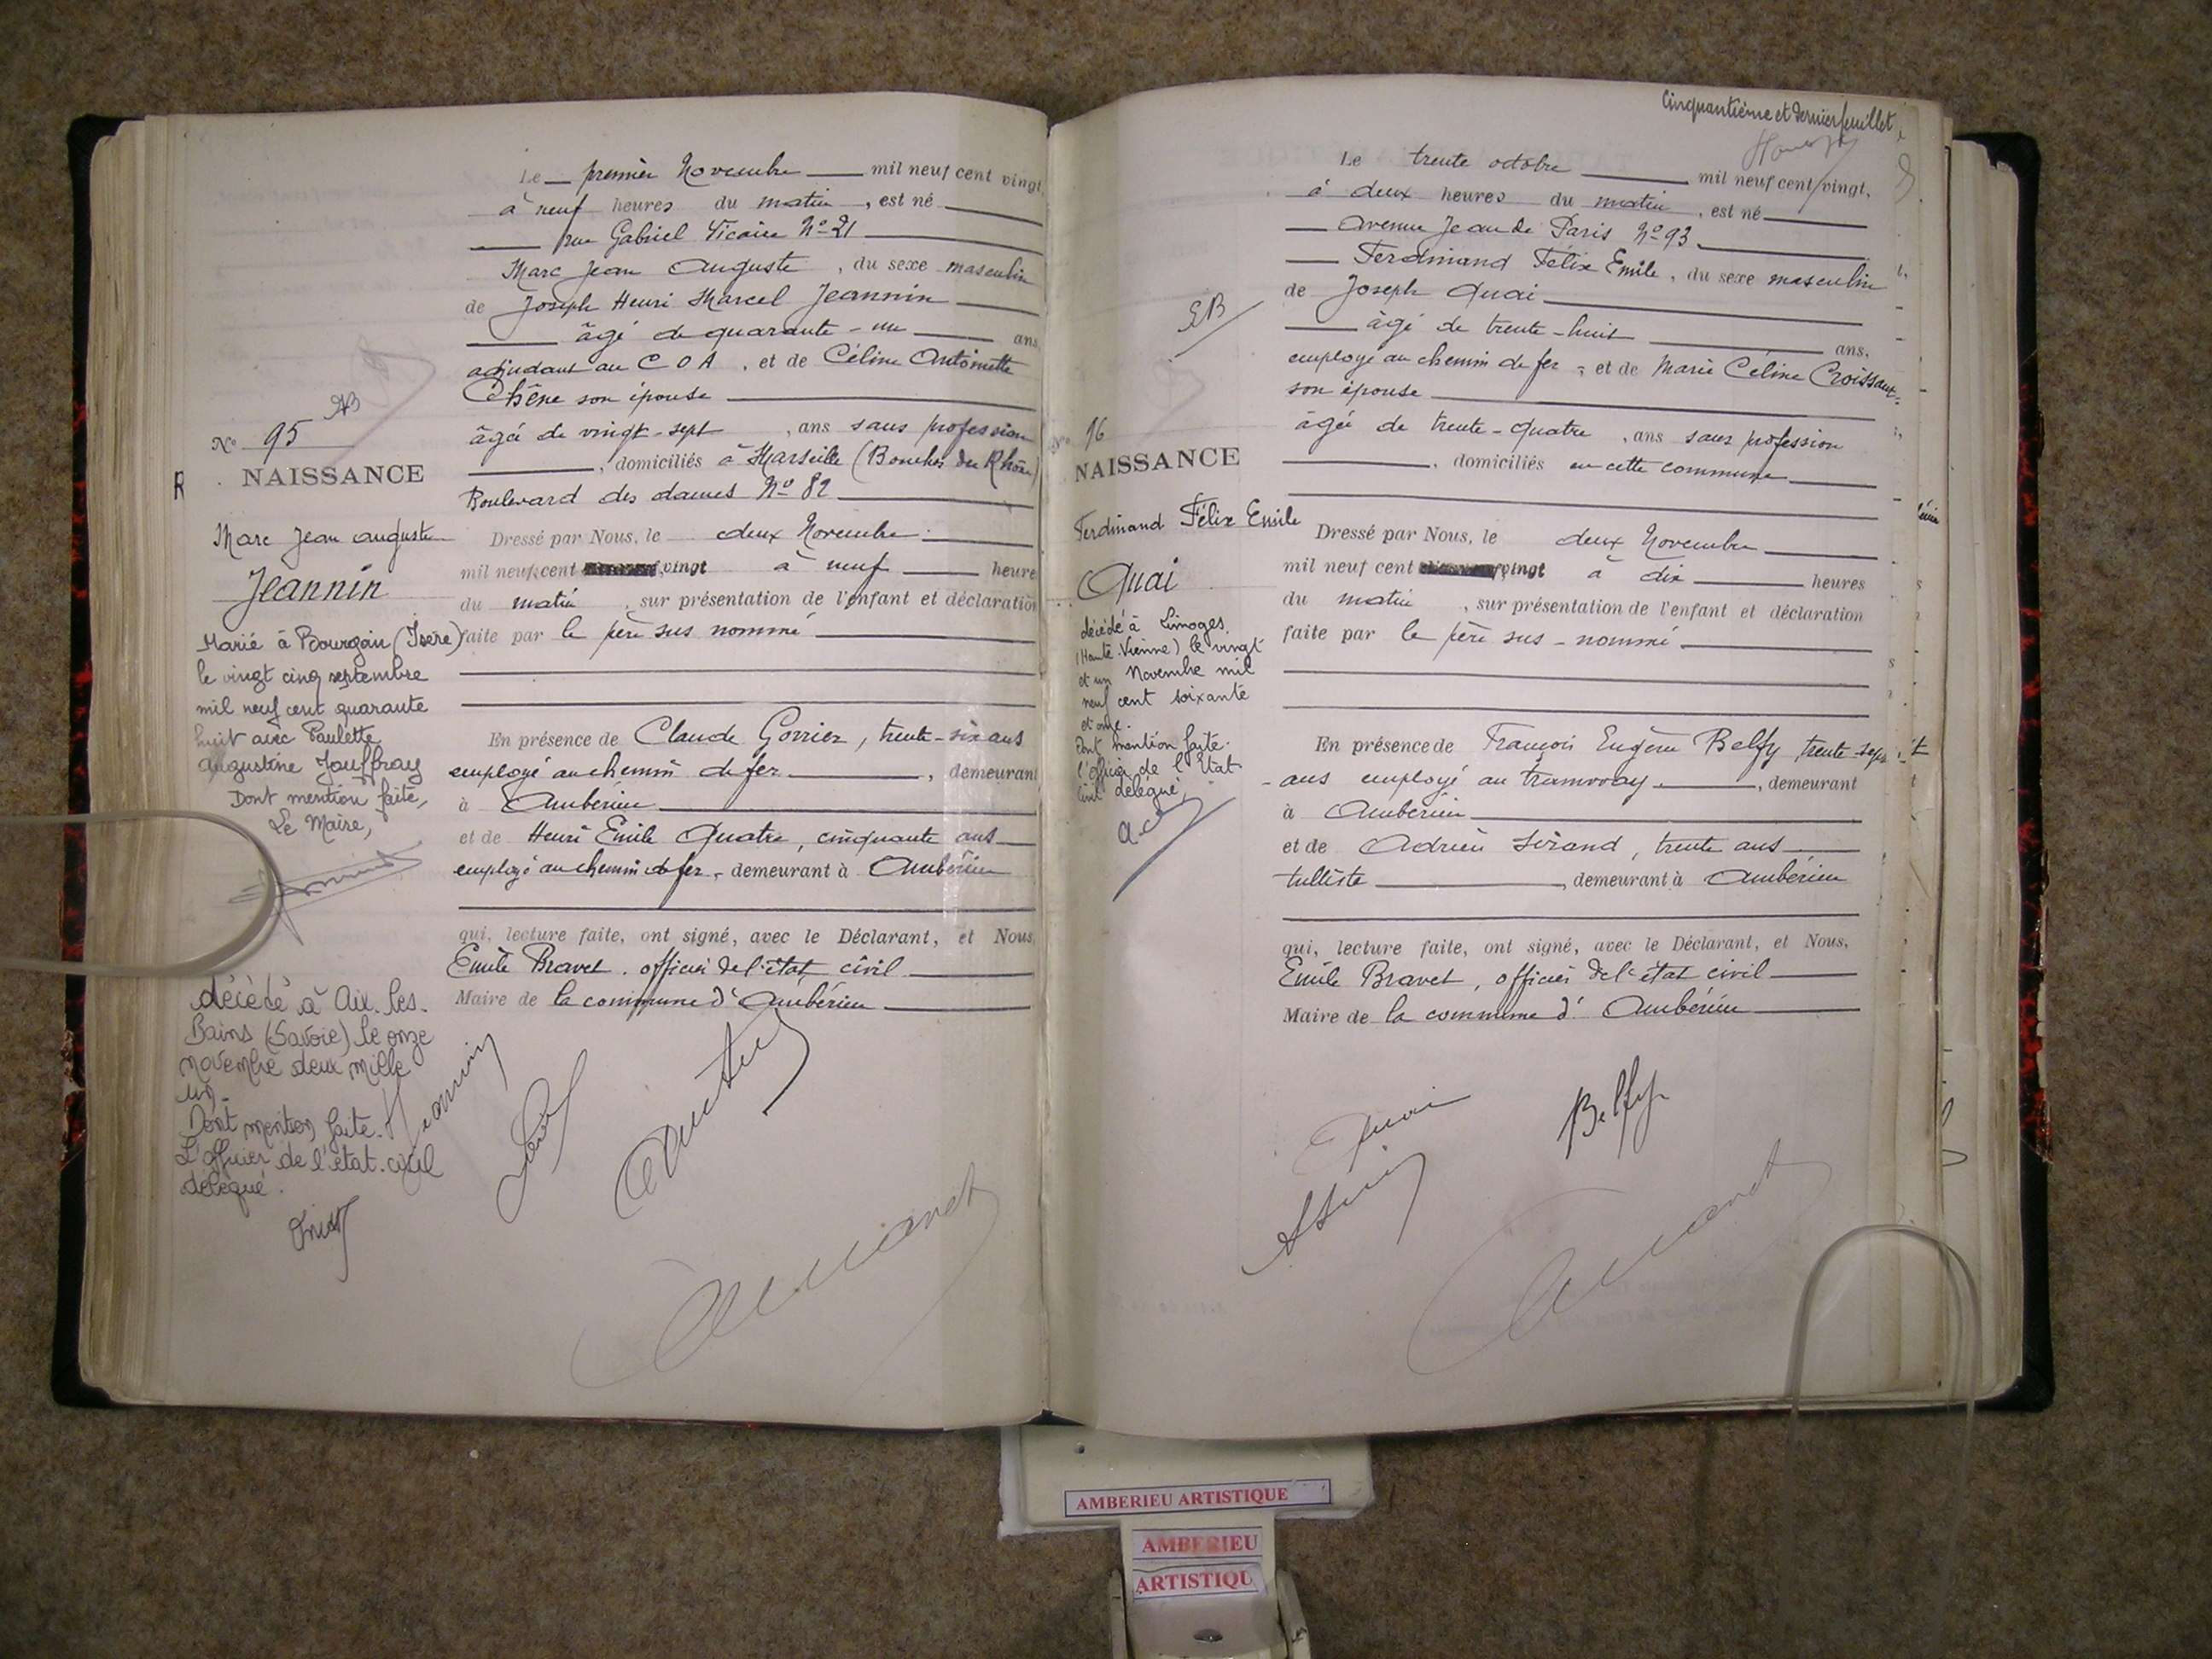 Le premier Novembre mil neuf cent vingt,
à neuf heures du matin, est né
rue Gabriel Vicaire N° 21
Marc Jean Auguste, du sexe masculin
de Joseph Henri Marcel Jeannin
âgé de quarante-un ans,
adjudant au C O A, et de Céline Antoinette
Chêne son épouse
âgée de vingt-sept, ans sans profession
, domiciliés à Marseille (Bouches du Rhône)
Boulevard des dames N° 82
Dressé par Nous, le deux Novembre
mil neuf cent vingt à neuf heure
du matin, sur présentation de l'enfant et déclaration
faite par le père sus nommé
En présence de Claude Gorrier, trente-six ans
employé au chemin de fer, demeurant
à Ambérieu
et de Henri Emile Quatre, cinquante ans
employé au chemin de fer, demeurant à Ambérieu
qui, lecture faite, ont signé, avec le Déclarant, et Nous,
Emile Bravet, officier de l'état civil
Maire de la commune d'Ambérieu
Jeannin
AB
N° 95
R
NAISSANCE
Marc Jean Auguste
Jeannin
Marié à Bourgoin (Isère)
le vingt cinq septembre
mil neuf cent quarante
huit avec Paulette
Augustine Jouffray
Dont mention faite,
Le Maire,
décédé à Aix-les-
Bains (Savoie) le onze
novembre deux mille
un.
Dont mention faite.
L'officier de l'état-civil
délégué.
Cinquantième et dernier feuillet
Le trente octobre mil neuf cent vingt,
à deux heures du matin, est né
Avenue Jean de Paris N° 93
Ferdinand Félix Emile, du sexe masculin
de Joseph Quai
âgé de trente-huit ans,
employé au chemin de fer, et de Marie Céline Croissant
son épouse
âgée de trente-quatre, ans sans profession
, domiciliés en cette commune
Dressé par Nous, le deux Novembre
mil neuf cent vingt à dix heures
du matin, sur présentation de l'enfant et déclaration
faite par le père sus-nommé
En présence de François Eugène Belfy, trente-sept
ans employé au tramway, demeurant
à Ambérieu
et de Adrien Sirand, trente ans
tulliste, demeurant à Ambérieu
qui, lecture faite, ont signé, avec le Déclarant, et Nous,
Emile Bravet, officier de l'état civil
Maire de la commune d'Ambérieu
Quai
Belfy
N° 96
NAISSANCE
Ferdinand Félix Emile
Quai
décédé à Limoges
(Haute Vienne) le vingt
et un Novembre mil
neuf cent soixante
et onze.
Dont mention faite.
l'officier de l'Etat
Civil délégué,
AMBERIEU ARTISTIQUE
AMBERIEU
ARTISTIQU